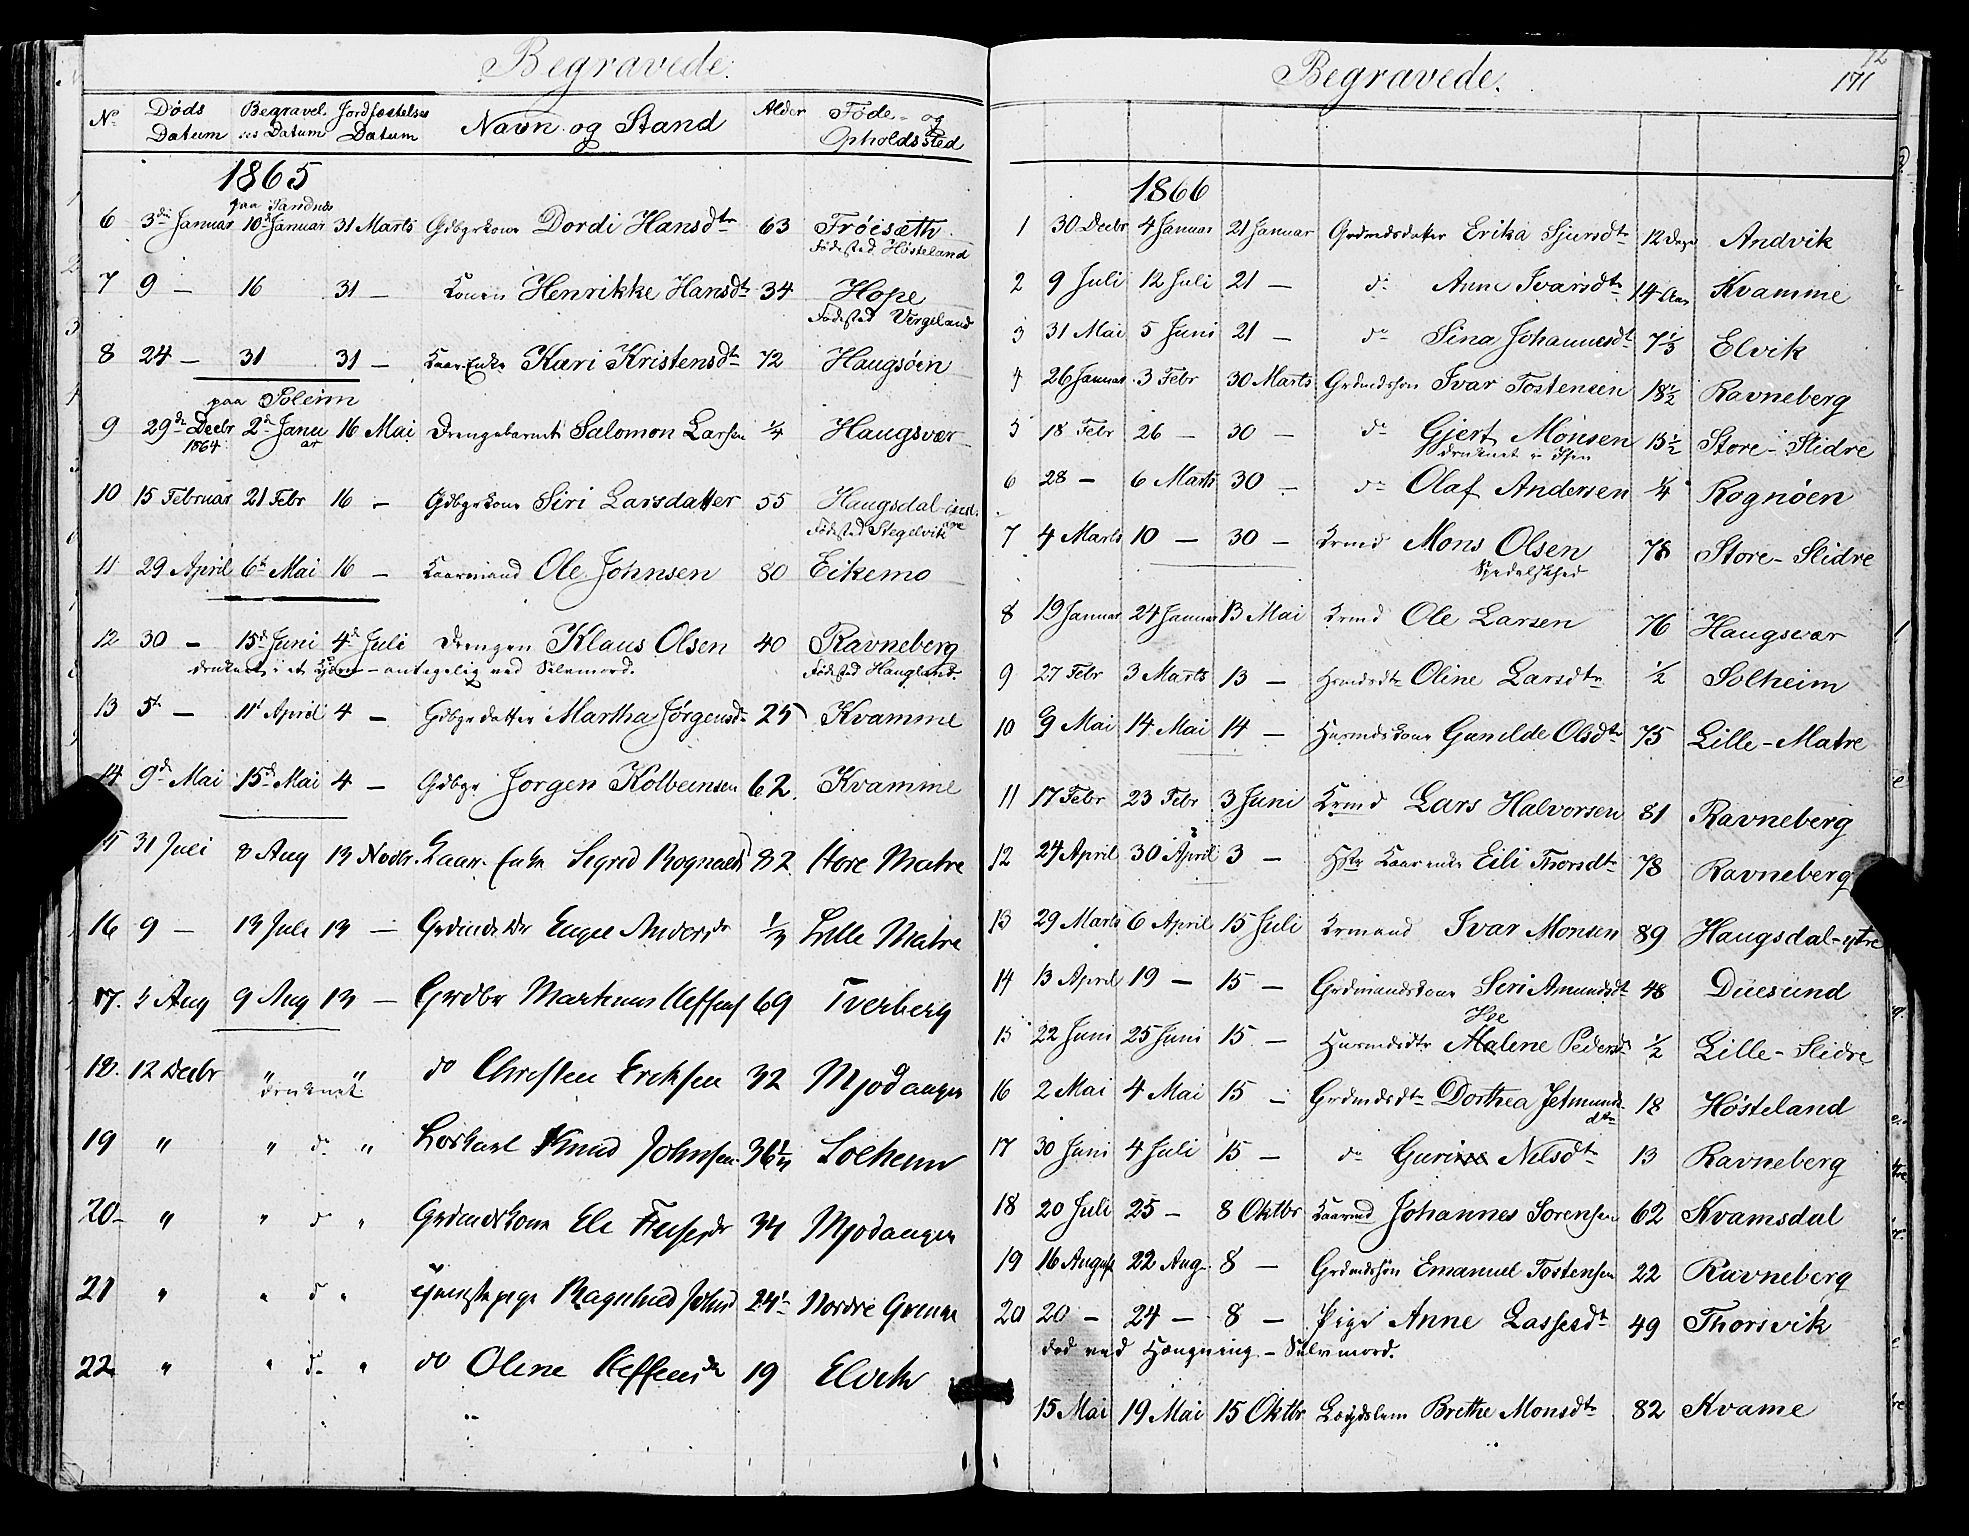 Begravede.
No Døds Datum Begravelses Datum Jordfæstelses Datum Navn og Stand Alder Føde- og Opholdssted
1865
paa Sandnes
6 3die Januar 10de Januar 31 Marts Gdbgrkone Dordi Hansdtr 63 Frøiseth
Fødested Høsteland
7 9 — 16 31 — Konen Henrikke Hansdtr 34 Hope
Fødested Vergeland
8 24 — 31 31 — Kaar-Enke Kari Kristensdtr 72 Haugsøen
paa Soleim
9 29de Decbr 2de Janu 16 Mai Drengebarnet Salomon Larsen 1/4 Haugsvær
1864 ar
10 15 Februar 21 Febr 16 — Gdbgrkone Siri Larsdatter 55 Haugsdal-ind
re
Fødested Stegelvik
11 29 April 6te Mai 16 — Kaarmand Ole Johnsen 80 Eikemo
12 30 — 15de Juni 4de Juli Drengen Klaus Olsen 40 Ravneberg
druknet i et Kjern – antagelig ved Selvmord. Fødested Haugland
13 5te — 11te April 4 — Gdbgrdatter Martha Jørgensdr 25 Kvamme
14 9de Mai 15de Mai 4 — Gdbgr Jørgen Kolbeensen 62. Kvamme
15 31 Juli 8 Aug 13 Novbr. Kaar-Enke Sigred Rognaldsd 82 Store Matre
16 9 — 13 Juli 13 — Grdmdsdr Andersdr 1/3 Lille Matre
17. 5 Aug 9 Aug 13 — Grdbr Martinus Steffens 69 Tverberg
18. 12 Decbr " druknet " do Christen Eriksen 32 Mjødanger
19 " " do " Løskarl Knud Johnsen 36 1/2 Solheim
20 – " " do " Grdmdskone Eli 34 Mjødanger
21 " " do " Tjenestepige Ragnhild Johnsd 24 1/2 Nordre
22 " " do " do Oline Steffensdr 19 Elvik
Begravede.
12
171
1866
1 30 Decbr 4 Januar 21 Januar Grdmdsdatter Erika Sjursdtr 12 Dage Andvik
2 9 Juli 12 Juli 21 — do Anne Ivarsdtr 14 Aar Kvamme
3 31 Mai 5 Juni 21 — do Sina Johannesdtr 7 1/3 Elvik
4 26 Januar 3 Febr 30 Marts Grdmdssøn Ivar Tostensen 18 1/2 Ravneberg
5 18 Febr 26 — 30 — do Gjert Monsen 15 1/2 Store-Slidre
druknet i Isen
6 28 — 6 Marts 30 — do Olaf Andersen 1/4 Rognøen
7 4 Marts 10 — 30 — Krmd Mons Olsen 78 Store-Slidre
Spedalskhed
8 19 Januar 24 Januar 13 Mai Krmd Ole Larsen 76 Haugsvær
9 27 Febr 3 Marts 13 — Hsmdsdtr Oline Larsdtr 1/2 Solheim
10 9 Mai 14 Mai 14 — Husmdskone Gunilde Olsdtr 75 Lille-Matre
11 17 Febr 23 Febr 3 Juni Krmd Lars Halvorsen 81 Ravneberg
12 24 April 30 April 3 — Kaarenke Eili Thorsdtr 78 Ravneberg
13 29 Marts 6 April 15 Juli Krmand Ivar Monsen 89 Haugsdal-ytre
14 13 April 19 — 15 — Grdmandskone Seri Amundsdtr 48 Düesund
15 22 Juni 25 Juni 15 — Husmdsdtr Malene Pedersdr 1/2 Lille-Slidre
16 2 Mai 4 Mai 15 — Grdmdsdtr Dorthea Jetmunds- 18 Høsteland
dtr
17 30 Juni 4 Juli 15 — do Gurine Nilsdtr 13 Ravneberg
18 20 Juli 25 — 8 Oktbr Kaarmd Johannes Sørensen 62 Kvamsdal
19 16 August 22 Aug. 8 — Grdmdssøn Emanuel Tostensen 22 Ravneberg
20 20 — 24 — 8 — Pige Anne Lassesdtr 49 Thorsvik
død ved Hængning – Selvmord.
15 Mai 19 Mai 15 Oktbr Lægdslem Brethe Monsdtr 82 Kvame